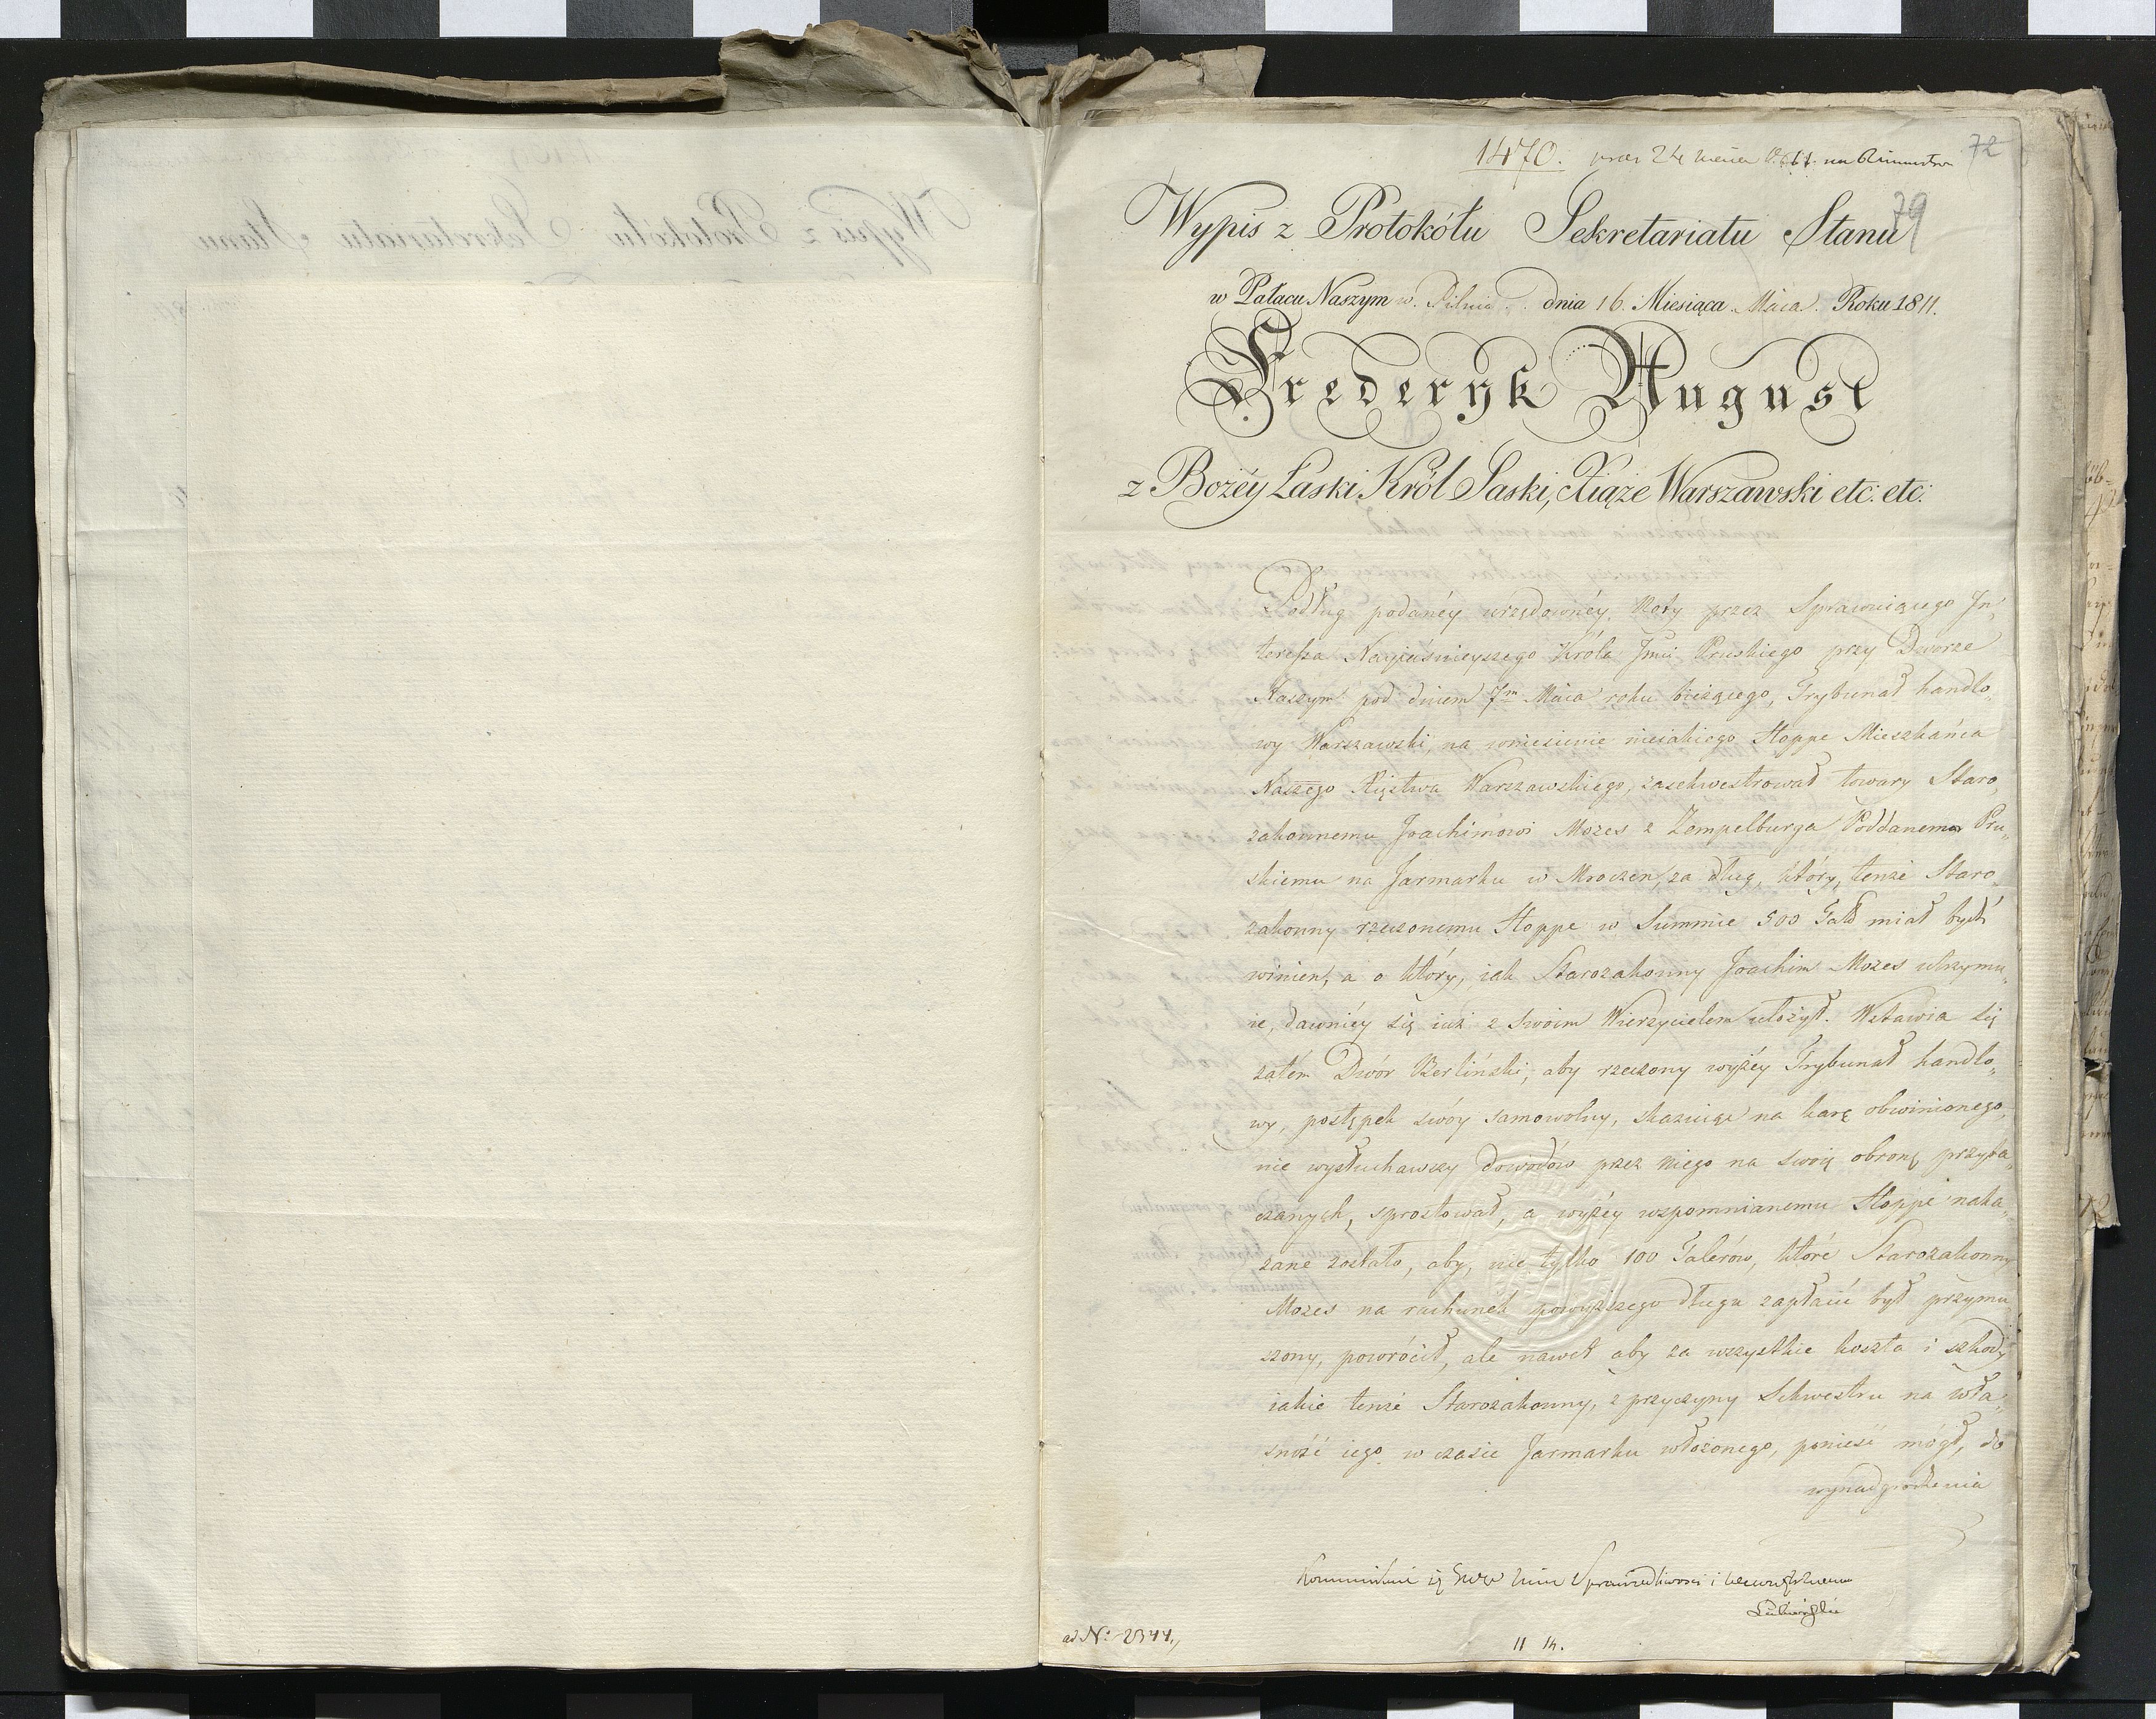 1470.
72
79
Wypis z Protokółu Sekretariatu Stanu
w Pałacu Naszym w Pilnic dnia 16. Miesiąca Maia Roku 1811.
Frederyk August
z Bożéy Łaski, Król Saski, Xiąże Warszawski etc: etc:
Podług podanéy urzędownéy Noty przez Sprawuiącego In„
teressa Nayiaśnieyszego Króla Jmci Pruskiego przy Dworze
Naszym pod dniem 7m Maia roku bieżącego, Trybunał handlo„
wy Warszawski, na wniesienie nieiakiego Hoppe Mieszkańca
Naszego Xięstwa Warszawskiego, zasekwestrował towary Staro„
zakonnemu Joachimowi Mozes z Zempelburga Poddanemu Pru„
skiemu na Jarmarku w Mroczen, za dług, który, tenże Staro„
zakonny rzeczonemu Hoppe w Summie 500 Tal: miał bydź
winien, a o który, iak Starozakonny Joachim Mozes utrzymu„
ie, dawniéy się iuż z swoim Wierzycielem ułożył. Wstawia się
zatém Dwór Berliński, aby rzeczony wyżéy Trybunał handlo„
wy, postępek swóy samowolny, skazuiąc na karę obwinionego,
nie wysłuchawszy dowodów przez niego na swoię obronę przyta„
czanych, sprostował, a wyżéy wspomnianemu Hoppe naka„
zane zostało, aby, nie tylko 100 Talerów, które Starozakonny
Mozes na rachunek powyższego długu zapłacić był przymu
szony, powrócił, ale nawet aby za wszystkie koszta i szkody
iakie tenże Starozakonny, z przyczyny Sekwestru na wła„
sność iego w czasie Jarmarku włożonego, ponieść mógł, do
wynadgrodzenia
Sprawiedliwości i
ad No: 2344.
11 14.